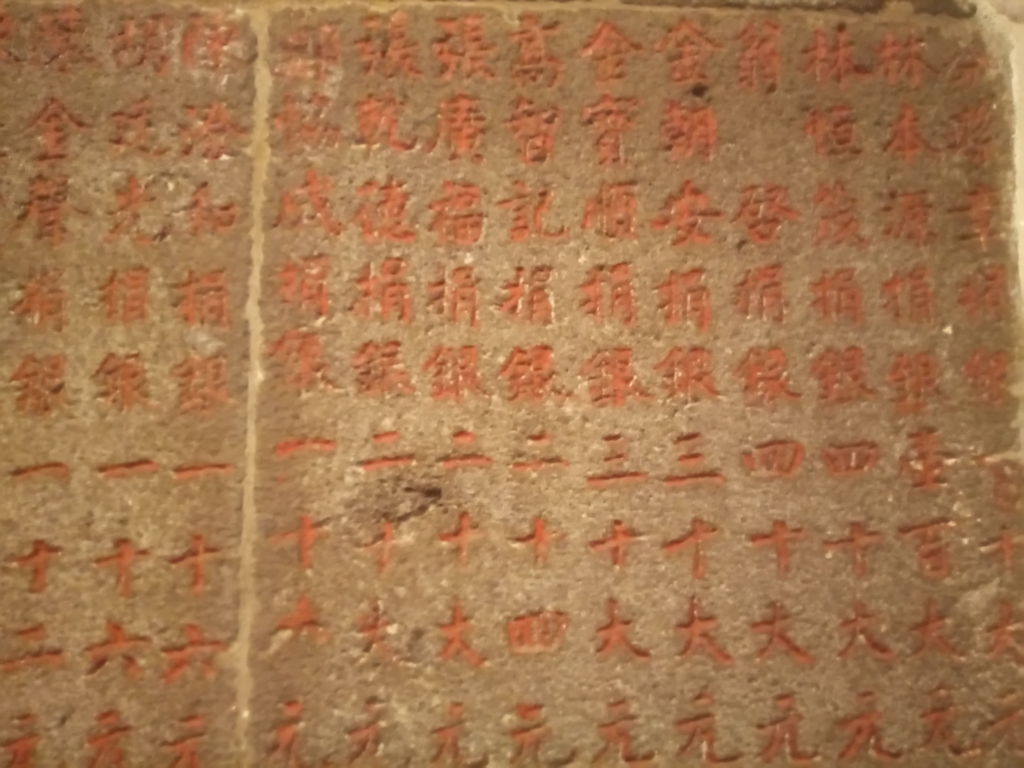 捐銀十大元
林本源捐銀壹百大元
林恒茂捐銀四十大元
翁啓捐銀四十大元
金朝安捐銀三十大元
金寶順捐銀三十大元
高智記捐銀二十四元
張廣福捐銀二十大元
張乾德捐銀二十大元
協成捐銀一十六元
陳澄和捐銀一十六元
胡廷光捐銀一十六元
金聲捐銀一十二元